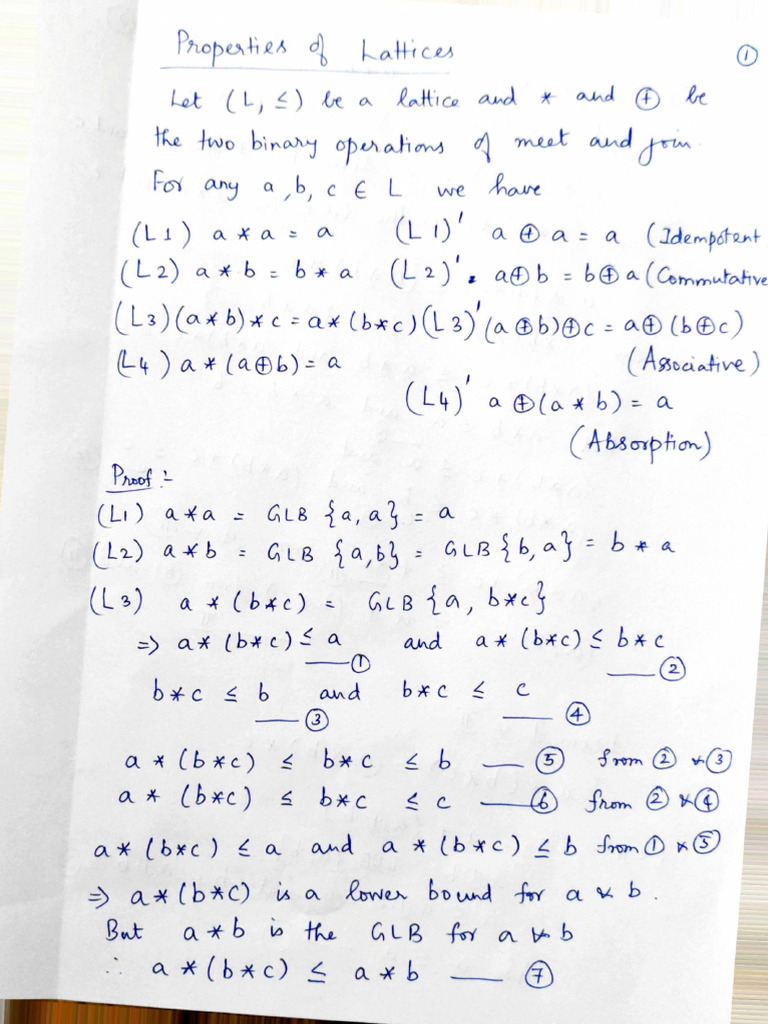 Properties of Lattices
①
Let (L, ≤) be a lattice and * and ⊕ be
the two binary operations of meet and join.
For any a, b, c ∈ L we have
(L1) a * a = a (L1)' a ⊕ a = a (Idempotent
(L2) a * b = b * a (L2)'. a⊕b = b⊕a (Commutative
(L3) (a*b)*c = a*(b*c) (L3)' (a⊕b)⊕c = a⊕(b⊕c)
(Associative)
(L4) a * (a⊕b) = a
(L4)' a ⊕(a * b) = a
(Absorption)
Proof :-
(L1) a*a = GLB {a, a} = a
(L2) a*b = GLB {a,b} = GLB {b, a} = b * a
(L3) a * (b*c) = GLB {a, b*c}
⇒ a* (b*c) ≤ a and a* (b*c) ≤ b*c
—① —②
b*c ≤ b and b*c ≤ c
—③ —④
a * (b*c) ≤ b*c ≤ b —⑤ from ② & ③
a * (b*c) ≤ b*c ≤ c —⑥ from ② & ④
a* (b*c) ≤ a and a * (b*c) ≤ b from ① & ⑤
⇒ a*(b*c) is a lower bound for a & b.
But a*b is the GLB for a & b
∴ a *(b*c) ≤ a*b —⑦